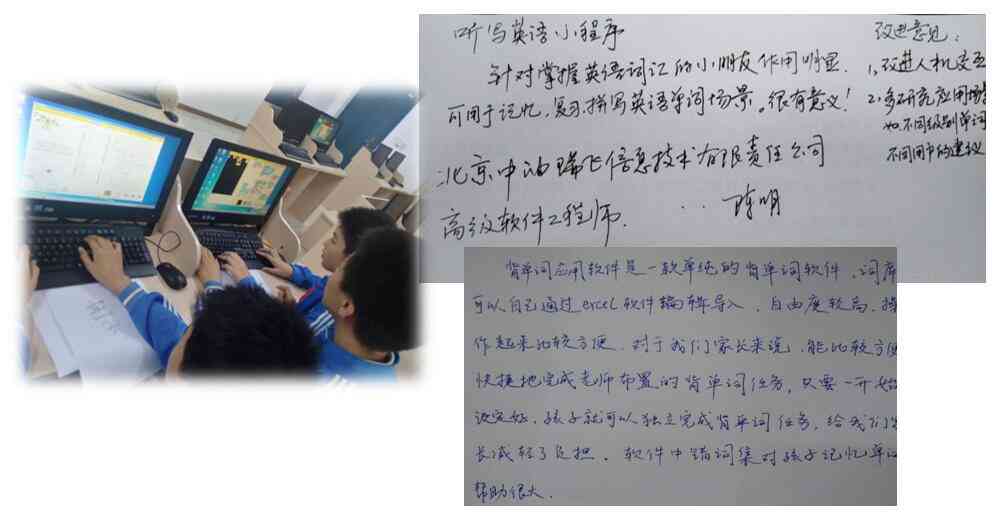 听写英语小程序
针对掌握英语词汇的小朋友作用明显.
可用于记忆,复习,拼写英语单词场景。很有意义!
北京中油瑞飞信息技术有限责任公司
高级软件工程师. 陈明
改进意见:
1、改进人机交互
2、多研究应用场景
如.不同级别单词
不同用户的建议
背单词应用软件是一款单纯的背单词软件,词库
可以自己通过excel软件编辑导入,自由度较高,操
作起来比较方便.对于我们家长来说,能比较方便
快捷地完成老师布置的背单词任务,只要一开始
设定好,孩子就可以独立完成背单词任务,给我们家
长减轻了负担.软件中错词集对孩子记忆单词
帮助很大.